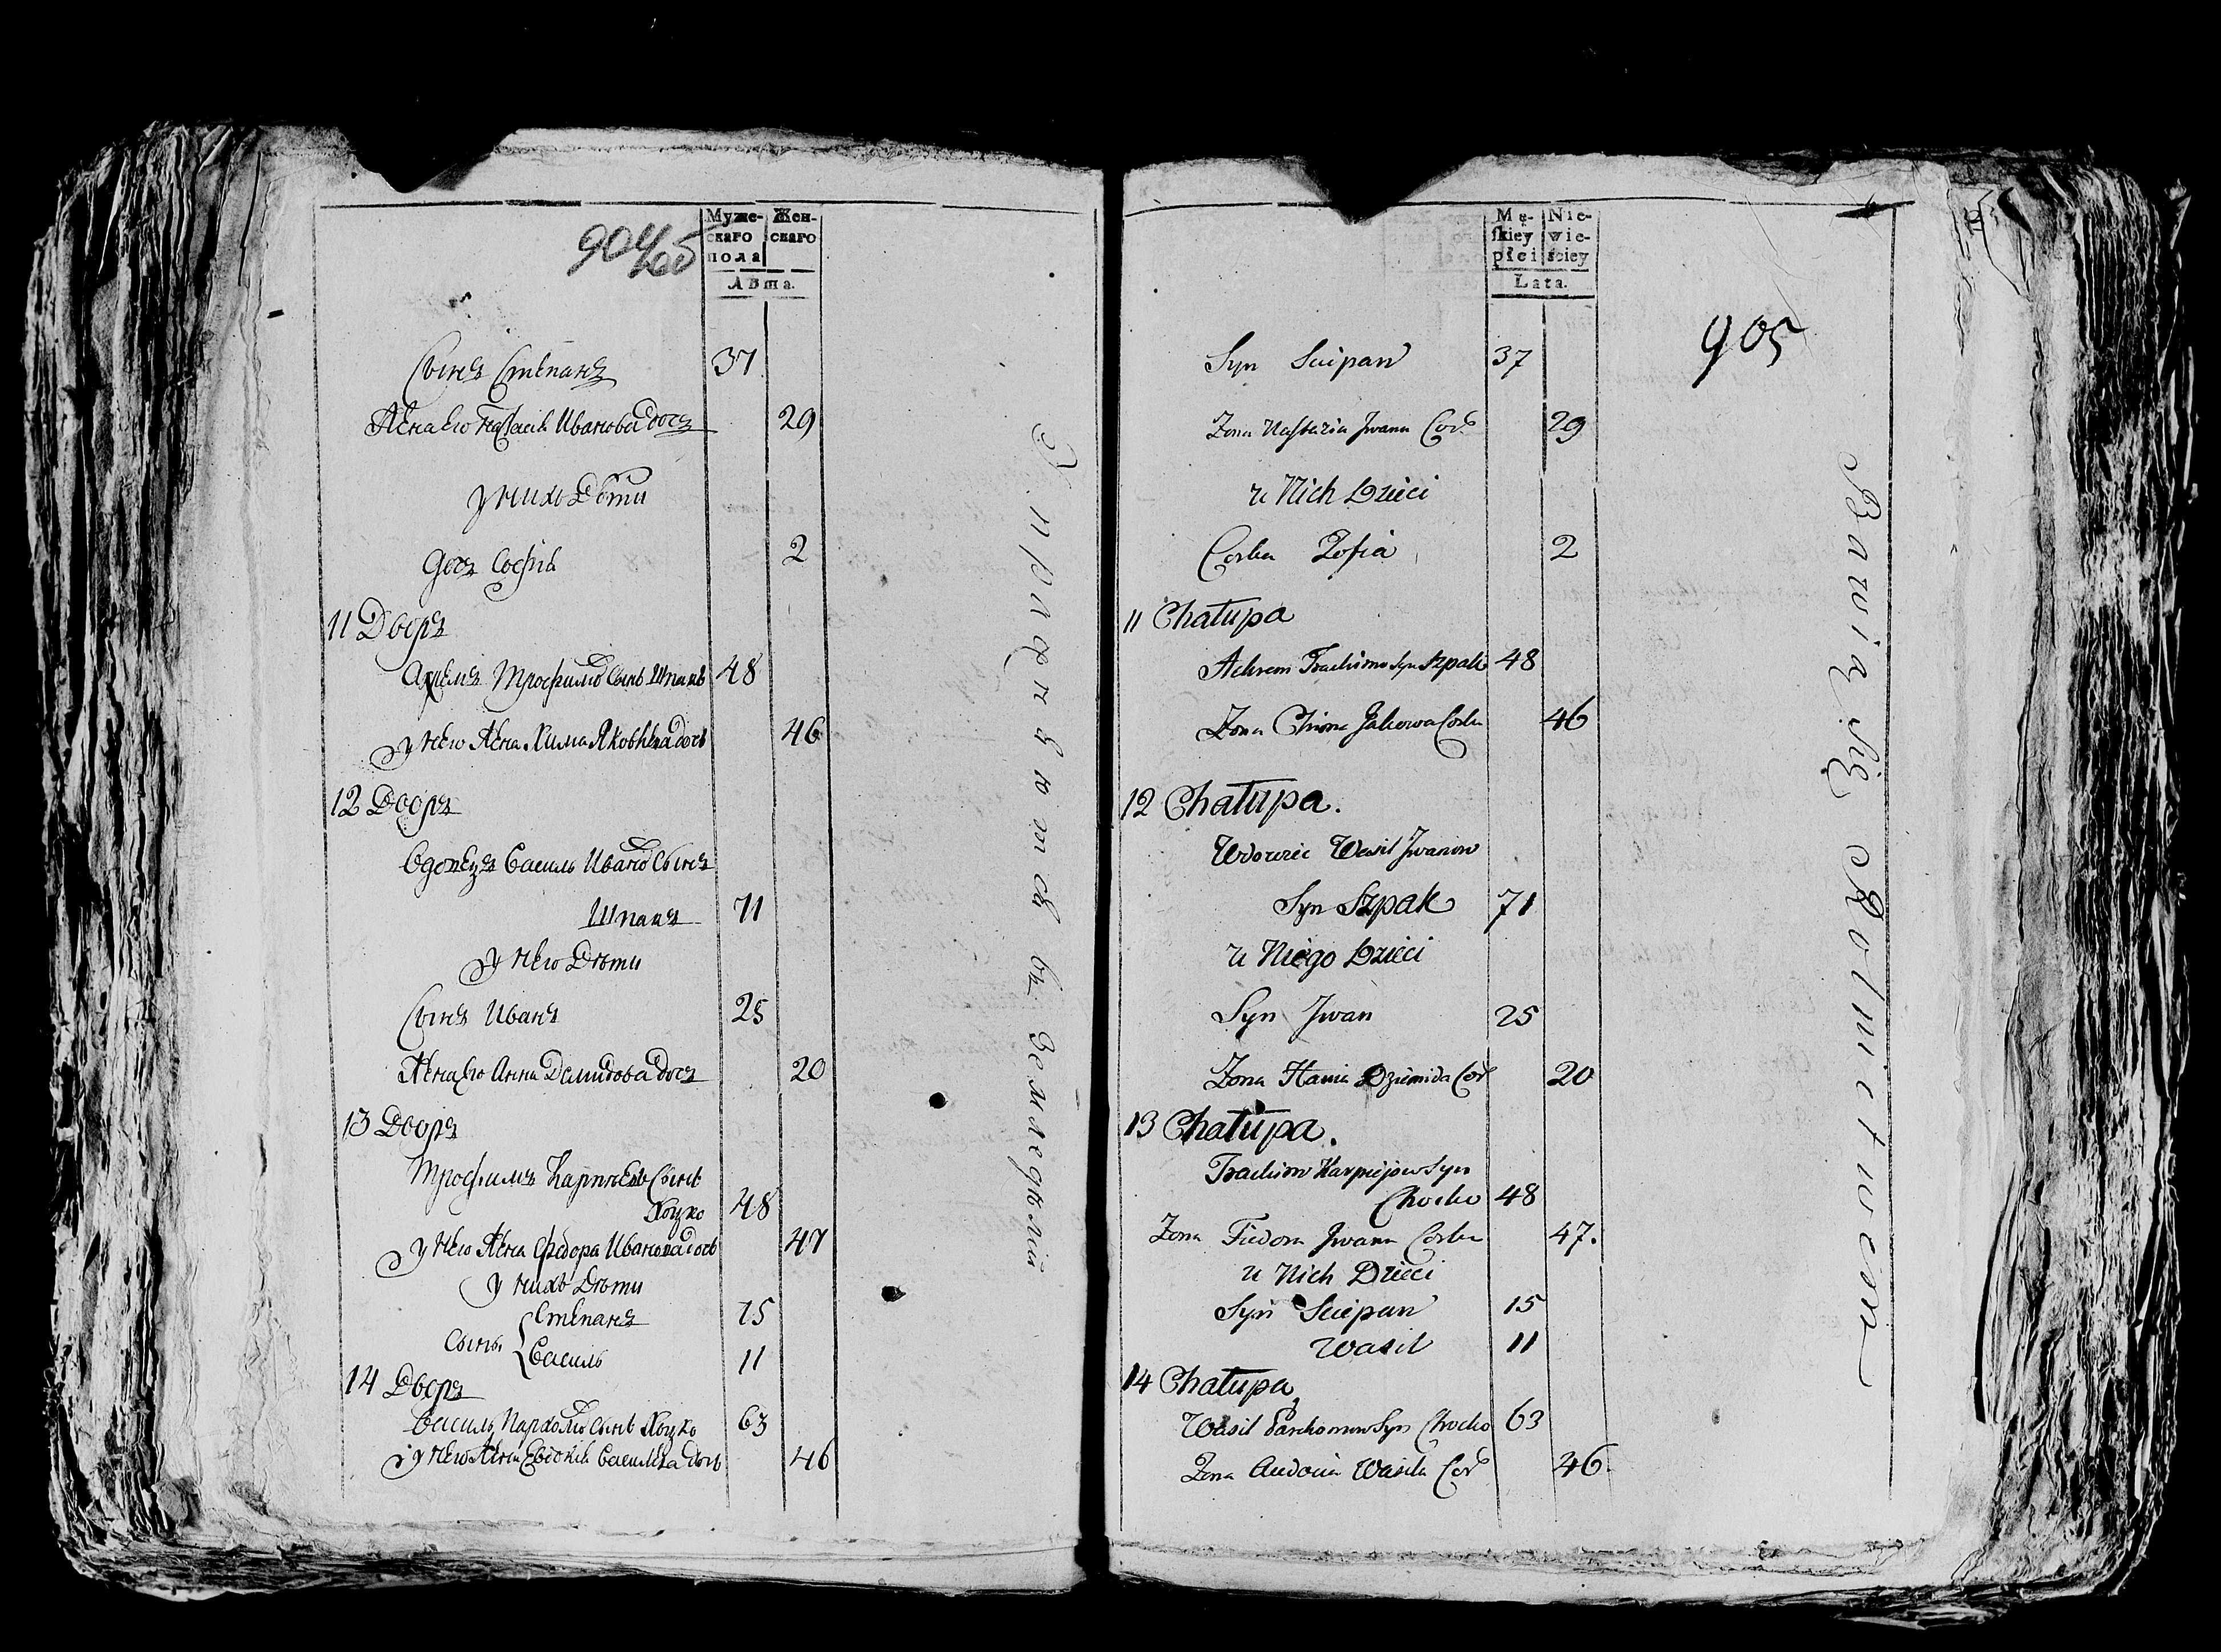 904
905
Муже-
скаго
пола
Жен-
скаго
Лѣта.
Сынъ Степанъ 37
Жена Его Настасiя Иванова Дочь 29
у нихъ Дѣти
Дочь Софiя 2
11 Дворъ
Трофимо Сынъ Шпакъ 48
у него Жена Хима Яковлева дочь 46
12 Дворъ
Вдовецъ Василь Ивано Сынъ
Шпакъ 71
у него Дѣти
Сынъ Иванъ 25
Жена Его Анна Демидова дочь 20
13 Дворъ
Трофимъ Карпѣевъ Сынъ
Хоцко 48
у него Жена Федора Иванова дочь 47
у нихъ Дѣти
Сыны Степанъ 15
Василь 11
14 Дворъ
Василь Пархомо Сынъ Хоцко 63
у него Жена Евдокiя Васильева дочь 46
Упражняются въ Земледѣлiи
Mę-
ſkiey
płci
Nie-
wie-
ściey
Lata.
905
Syn Sciepan 37
Zona Nastazia Jwana Cor 29
u Nich Dzieci
Corka Zofia 2
11 Chałupa
Achrem Trachimow Syn Szpak 48
Zona Chima Jakowa Corka 46
12 Chałupa.
Wdowiec Wasil Jwanow
Syn Szpak 71
u Niego Dzieci
Syn Jwan 25
Zona Hania Dziemida Cor 20
13 Chałupa.
Trachim Karpiejow Syn
Chocko 48
Zona Fiedora Jwana Corka 47.
u Nich Dzieci
Syn Sciepan 15
Wasil 11
14 Chałupa
Wasil Parchomow Syn Chocko 63
Zona Audocia Wasila Cor 46.
Bawią się Rolnictwem